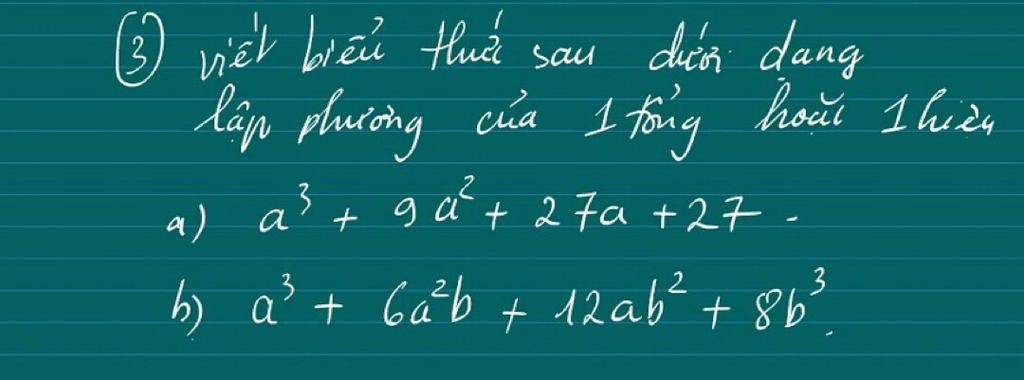 ③ viết biểu thức sau dưới dạng
lập phương của 1 tổng hoặc 1 hiệu
a) a³ + 9a² + 27a + 27.
b) a³ + 6a²b + 12ab² + 8b³.